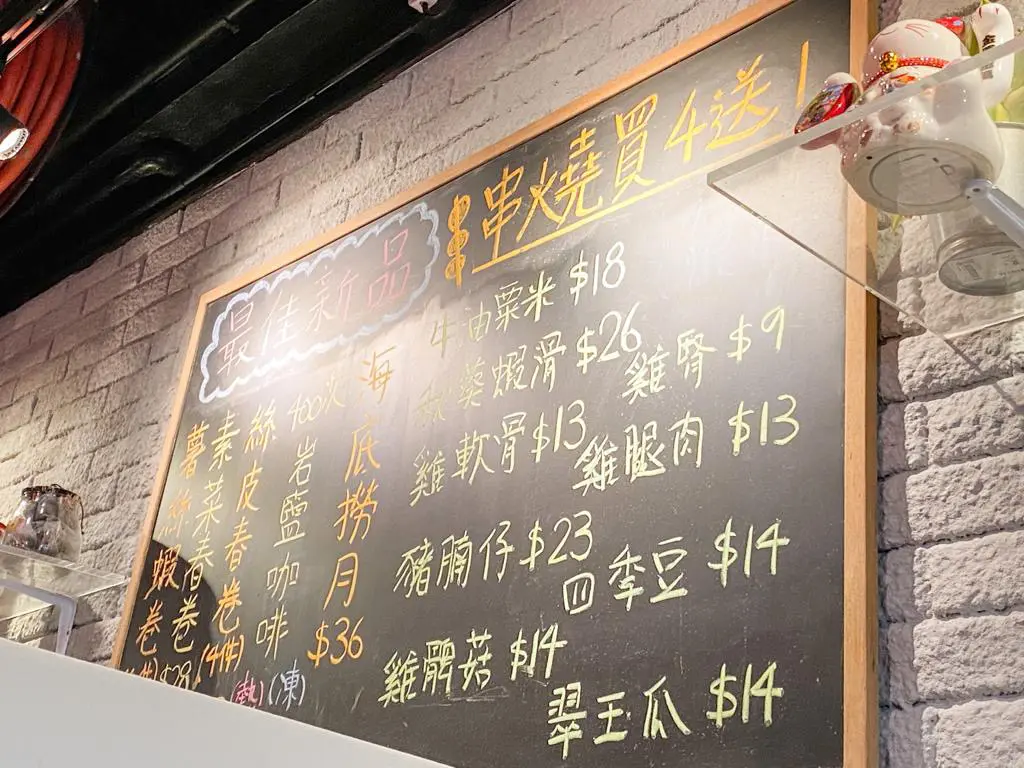 串串燒買4送1
最佳新品
海底撈月$36
400次岩鹽咖啡
(熱)(凍)
絲皮春卷(4件)
素菜春卷
薯絲蝦卷
$28
牛油粟米 $18
秋葵蝦滑 $26
雞腎 $9
雞軟骨 $13
雞腿肉 $13
豬腩仔 $23
四季豆 $14
雞髀菇 $14
翠玉瓜 $14